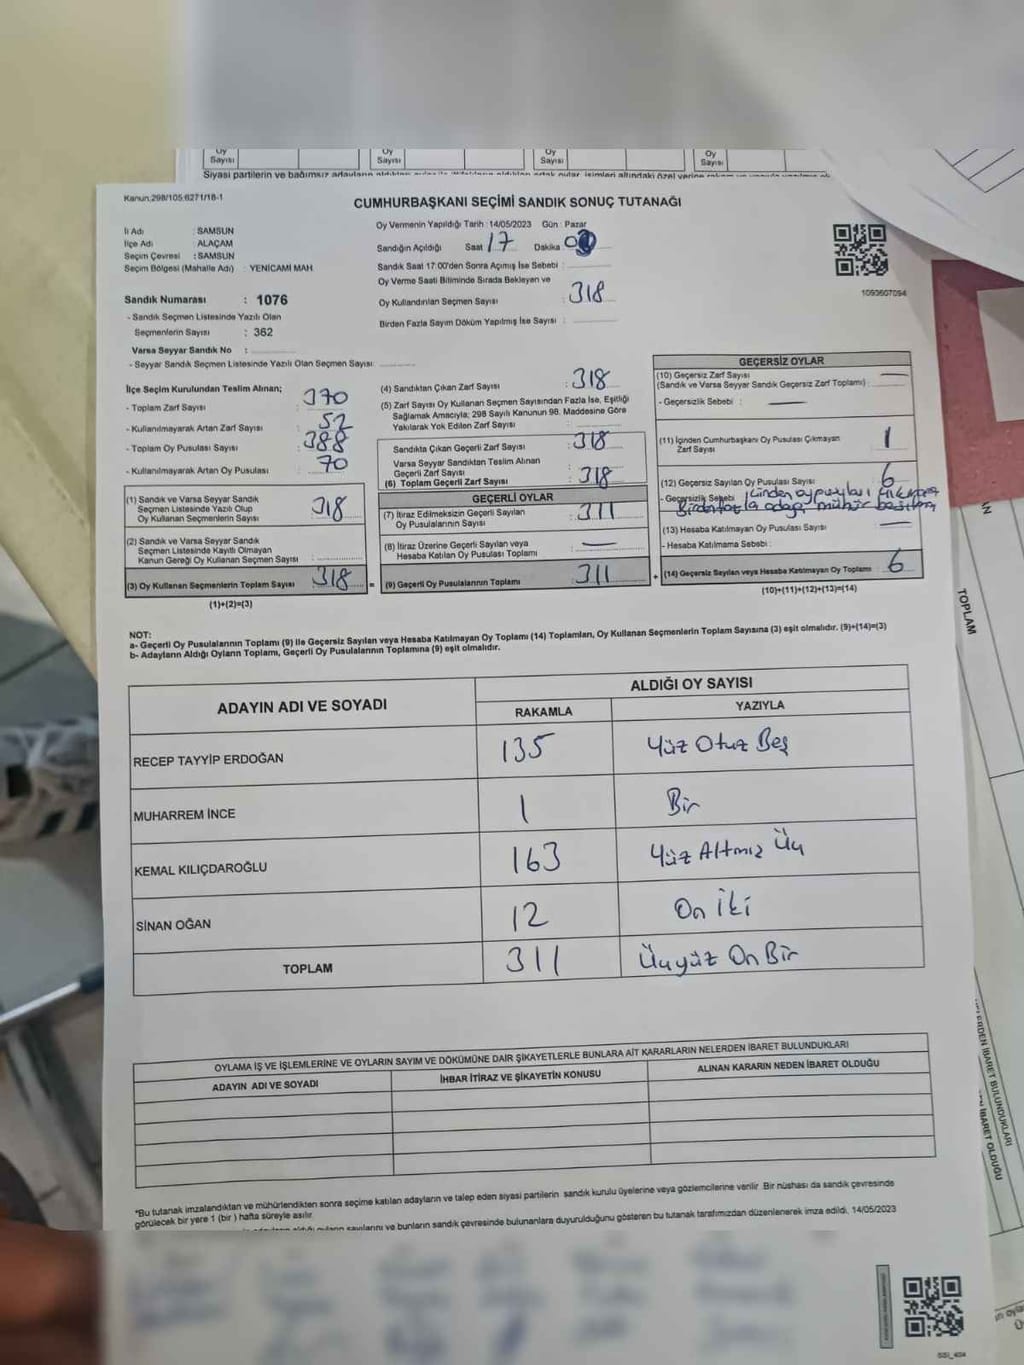 Oy Sayısı Oy Sayısı Oy Sayısı Oy Sayısı
Siyasi partilerin ve bağımsız adayların
Kanun:298/105;6271/18-1
CUMHURBAŞKANI SEÇİMİ SANDIK SONUÇ TUTANAĞI
İl Adı : SAMSUN
İlçe Adı : ALAÇAM
Seçim Çevresi : SAMSUN
Seçim Bölgesi (Mahalle Adı) : YENİCAMİ MAH
Oy Vermenin Yapıldığı Tarih : 14/05/2023 Gün : Pazar
Sandığın Açıldığı Saat 17 Dakika
Sandık Saat 17:00'den Sonra Açımış İse Sebebi :
Oy Verme Saati Bitiminde Sırada Bekleyen ve
Oy Kullandırılan Seçmen Sayısı : 318
Birden Fazla Sayım Döküm Yapılmış İse Sayısı :
1093607094
Sandık Numarası : 1076
- Sandık Seçmen Listesinde Yazılı Olan
Seçmenlerin Sayısı : 362
Varsa Seyyar Sandık No :
- Seyyar Sandık Seçmen Listesinde Yazılı Olan Seçmen Sayısı:
İlçe Seçim Kurulundan Teslim Alınan;
- Toplam Zarf Sayısı : 370
- Kullanılmayarak Artan Zarf Sayısı : 52
- Toplam Oy Pusulası Sayısı : 388
- Kullanılmayarak Artan Oy Pusulası : 70
(1) Sandık ve Varsa Seyyar Sandık
Seçmen Listesinde Yazılı Olup
Oy Kullanan Seçmenlerin Sayısı 318
(2) Sandık ve Varsa Seyyar Sandık
Seçmen Listesinde Kayıtlı Olmayan
Kanun Gereği Oy Kullanan Seçmen Sayısı
(3) Oy Kullanan Seçmenlerin Toplam Sayısı 318 =
(1)+(2)=(3)
(4) Sandıktan Çıkan Zarf Sayısı : 318
(5) Zarf Sayısı Oy Kullanan Seçmen Sayısından Fazla İse, Eşitliği
Sağlamak Amacıyla; 298 Sayılı Kanunun 98. Maddesine Göre
Yakılarak Yok Edilen Zarf Sayısı :
Sandıkta Çıkan Geçerli Zarf Sayısı : 318
Varsa Seyyar Sandıktan Teslim Alınan
Geçerli Zarf Sayısı :
(6) Toplam Geçerli Zarf Sayısı : 318
GEÇERLİ OYLAR
(7) İtiraz Edilmeksizin Geçerli Sayılan
Oy Pusulalarının Sayısı : 311
(8) İtiraz Üzerine Geçerli Sayılan veya
Hesaba Katılan Oy Pusulası Toplamı : —
(9) Geçerli Oy Pusulalarının Toplamı : 311 +
GEÇERSİZ OYLAR
(10) Geçersiz Zarf Sayısı —
(Sandık ve Varsa Seyyar Sandık Geçersiz Zarf Toplamı) :
- Geçersizlik Sebebi : —
(11) İçinden Cumhurbaşkanı Oy Pusulası Çıkmayan
Zarf Sayısı : 1
(12) Geçersiz Sayılan Oy Pusulası Sayısı : 6
- Geçersizlik Sebebi içinden oy pusulası
Birden fazla adaya mühür
(13) Hesaba Katılmayan Oy Pusulası Sayısı : —
- Hesaba Katılmama Sebebi :
(14) Geçersiz Sayılan veya Hesaba Katılmayan Oy Toplamı : 6
(10)+(11)+(12)+(13)=(14)
NOT:
a- Geçerli Oy Pusulalarının Toplamı (9) ile Geçersiz Sayılan veya Hesaba Katılmayan Oy Toplamı (14) Toplamları, Oy Kullanan Seçmenlerin Toplam Sayısına (3) eşit olmalıdır. (9)+(14)=(3)
b- Adayların Aldığı Oyların Toplamı, Geçerli Oy Pusulalarının Toplamına (9) eşit olmalıdır.
ADAYIN ADI VE SOYADI ALDIĞI OY SAYISI
RAKAMLA YAZIYLA
RECEP TAYYİP ERDOĞAN 135 Yüz Otuz Beş
MUHARREM İNCE 1 Bir
KEMAL KILIÇDAROĞLU 163 Yüz Altmış Üç
SİNAN OĞAN 12 On İki
TOPLAM 311 Üçyüz On Bir
OYLAMA İŞ VE İŞLEMLERİNE VE OYLARIN SAYIM VE DÖKÜMÜNE DAİR ŞİKAYETLERLE BUNLARA AİT KARARLARIN NELERDEN İBARET BULUNDUKLARI
ADAYIN ADI VE SOYADI İHBAR İTİRAZ VE ŞİKAYETİN KONUSU ALINAN KARARIN NEDEN İBARET OLDUĞU
*Bu tutanak imzalandıktan ve mühürlendikten sonra seçime katılan adayların ve talep eden siyasi partilerin sandık kurulu üyelerine veya gözlemcilerine verilir. Bir nüshası da sandık çevresinde
görülecek bir yere 1 (bir) hafta süreyle asılır.
sayılarını ve bunların sandık çevresinde bulunanlara duyurulduğunu gösteren bu tutanak tarafımızdan düzenlenerek imza edildi. 14/05/2023
TOPLAM
İBARET BULUNDUKLARI
İBARET OLDUĞU